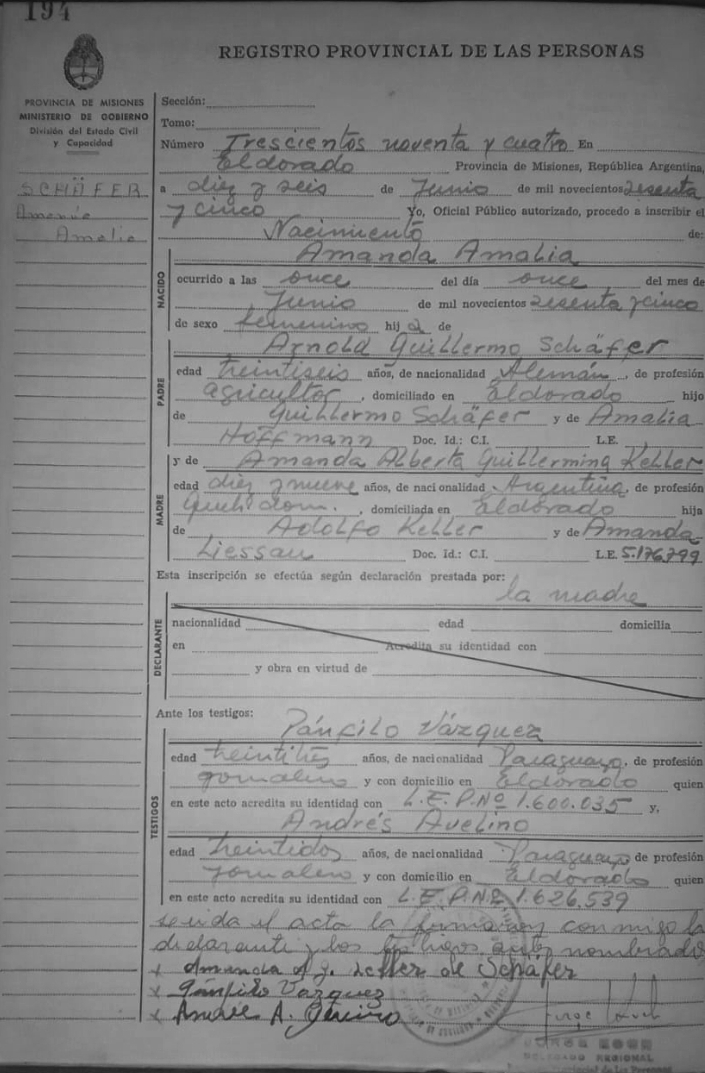 194
REGISTRO PROVINCIAL DE LAS PERSONAS
PROVINCIA DE MISIONES
MINISTERIO DE GOBIERNO
División del Estado Civil
y Capacidad
SCHÄFER
Amanda
Amalia
Sección:
Tomo:
Número Trescientos noventa y cuatro En
Eldorado Provincia de Misiones, República Argentina,
a diez y seis de Junio de mil novecientos sesenta
y cinco Yo, Oficial Público autorizado, procedo a inscribir el
Nacimiento de:
NACIDO
Amanda Amalia
ocurrido a las once del día once del mes de
Junio de mil novecientos sesenta y cinco
de sexo femenino hij a de
PADRE
Arnold Guillermo Schäfer
edad treintiseis años, de nacionalidad Alemán, de profesión
agricultor, domiciliado en Eldorado hijo
de Guillermo Schäfer y de Amalia
Hoffmann Doc. Id.: C.I. L.E.
MADRE
y de Amanda Alberta Guillermina Keller
edad diez y nueve años, de nacionalidad Argentina, de profesión
Queh. dom., domiciliada en Eldorado hija
de Adolfo Keller y de Amanda
Liessau Doc. Id.: C.I. L.E. 5.176.799
Esta inscripción se efectúa según declaración prestada por:
la madre
DECLARANTE
nacionalidad edad domicilia
en Acredita su identidad con
y obra en virtud de
Ante los testigos:
TESTIGOS
Pánfilo Vázquez
edad treintitrés años, de nacionalidad Paraguaya, de profesión
jornalero y con domicilio en Eldorado quien
en este acto acredita su identidad con L.E.P.Nº 1.600.035 y,
Andrés Avelino
edad treintidos años, de nacionalidad Paraguaya de profesión
jornalero y con domicilio en Eldorado quien
en este acto acredita su identidad con L.E.P.Nº 1.626.539
Leída el acta la firman con migo la
declarante y los testigos antes nombrados
x Amanda A. G. Keller de Schäfer
x Pánfilo Vázquez
x Andrés A.
DELEGADO REGIONAL
Provincial de las Personas